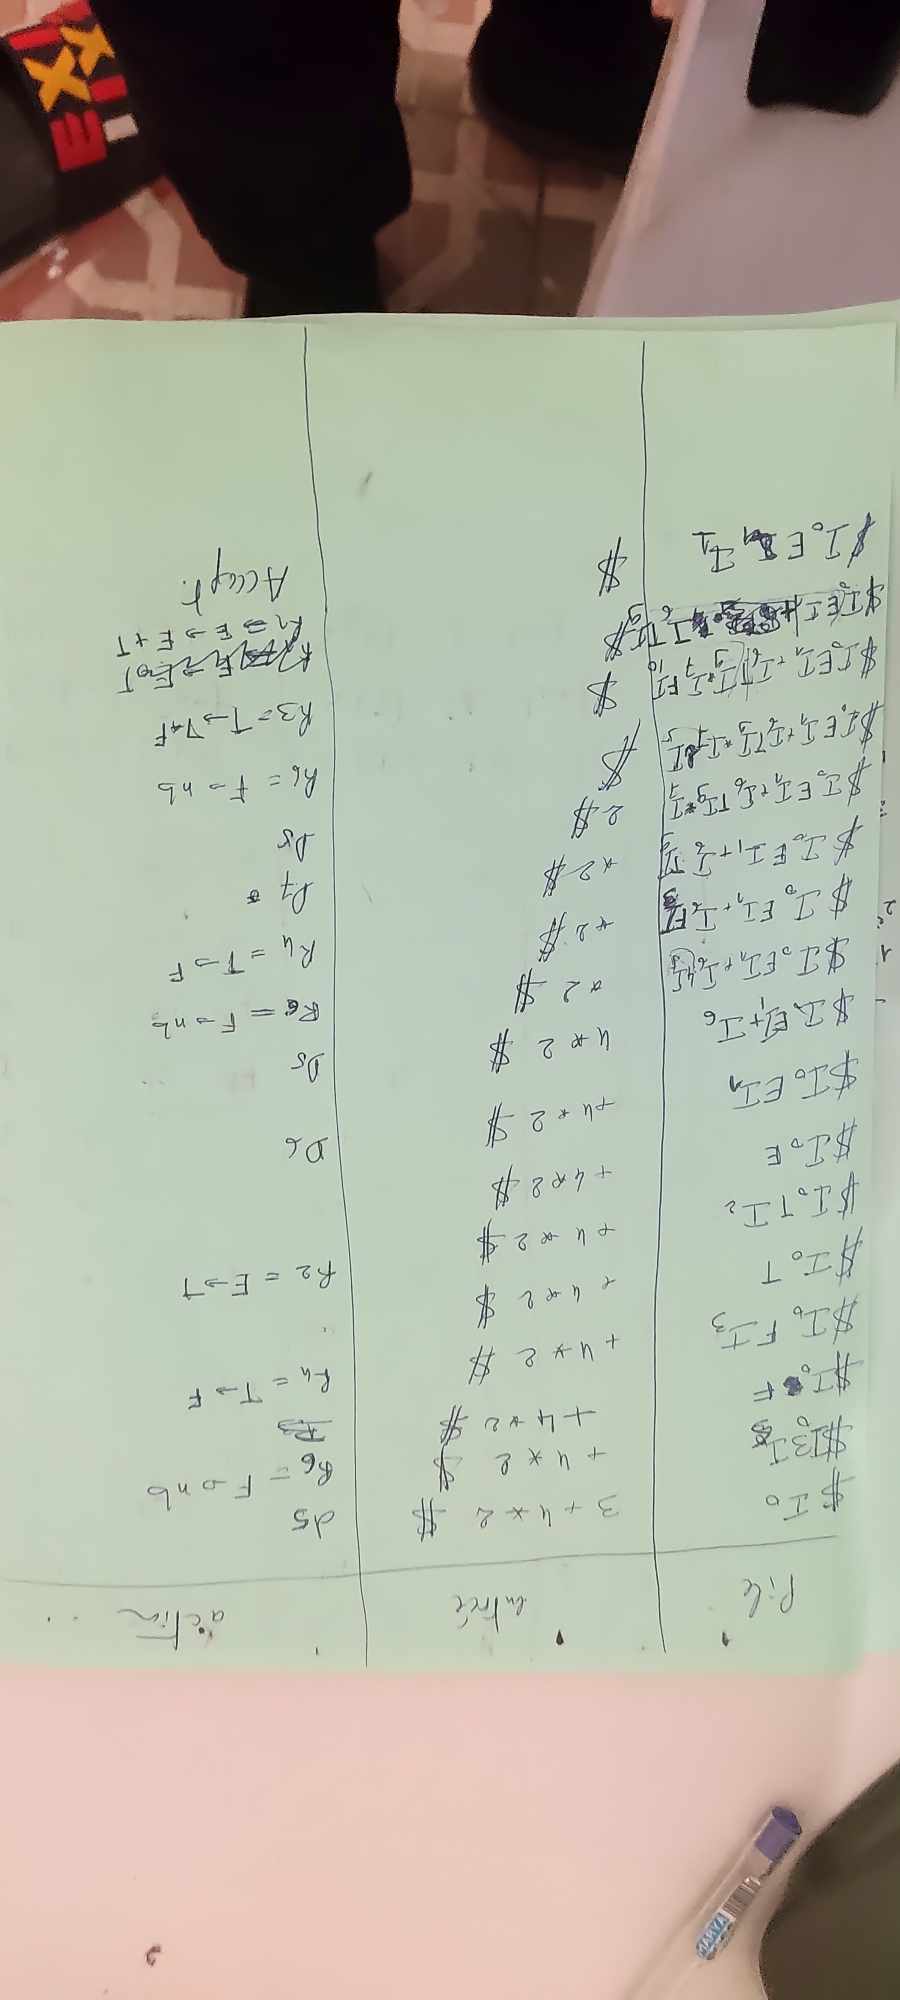 Pile entrée action
$ I0 3 + 4 * 2 $ d5
$I03I5 + 4 * 2 $ R6 = F → nb
$I0 F + 4 * 2 $
$I0 F I3 + 4 * 2 $ R4 = T → F
$I0 T + 4 * 2 $
$I0 T I2 + 4 * 2 $ R2 = E → T
$I0 E + 4 * 2 $
$I0 E I1 + 4 * 2 $ D6
$I0 E I1 + I6 4 * 2 $ D5
$ I0 E I1 + I6 4 I5 * 2 $ R6 = F → nb
$ I0 E I1 + I6 F I3 * 2 $ R4 = T → F
$ I0 E I1 + I6 T I9 * 2 $ D7
$ I0 E I1 + I6 T I9 * I7 2 $ D5
$I0 E I1 + I6 T I9 * I7 2 I5 $ R6 = F → nb
$I0 E I1 + I6 T I9 * I7 F I10 $ R3 = T → T * F
$I0 E I1 + I6 T I9 $ R1 = E → E + T
$ I0 E I1 $ Accept.
MARYA